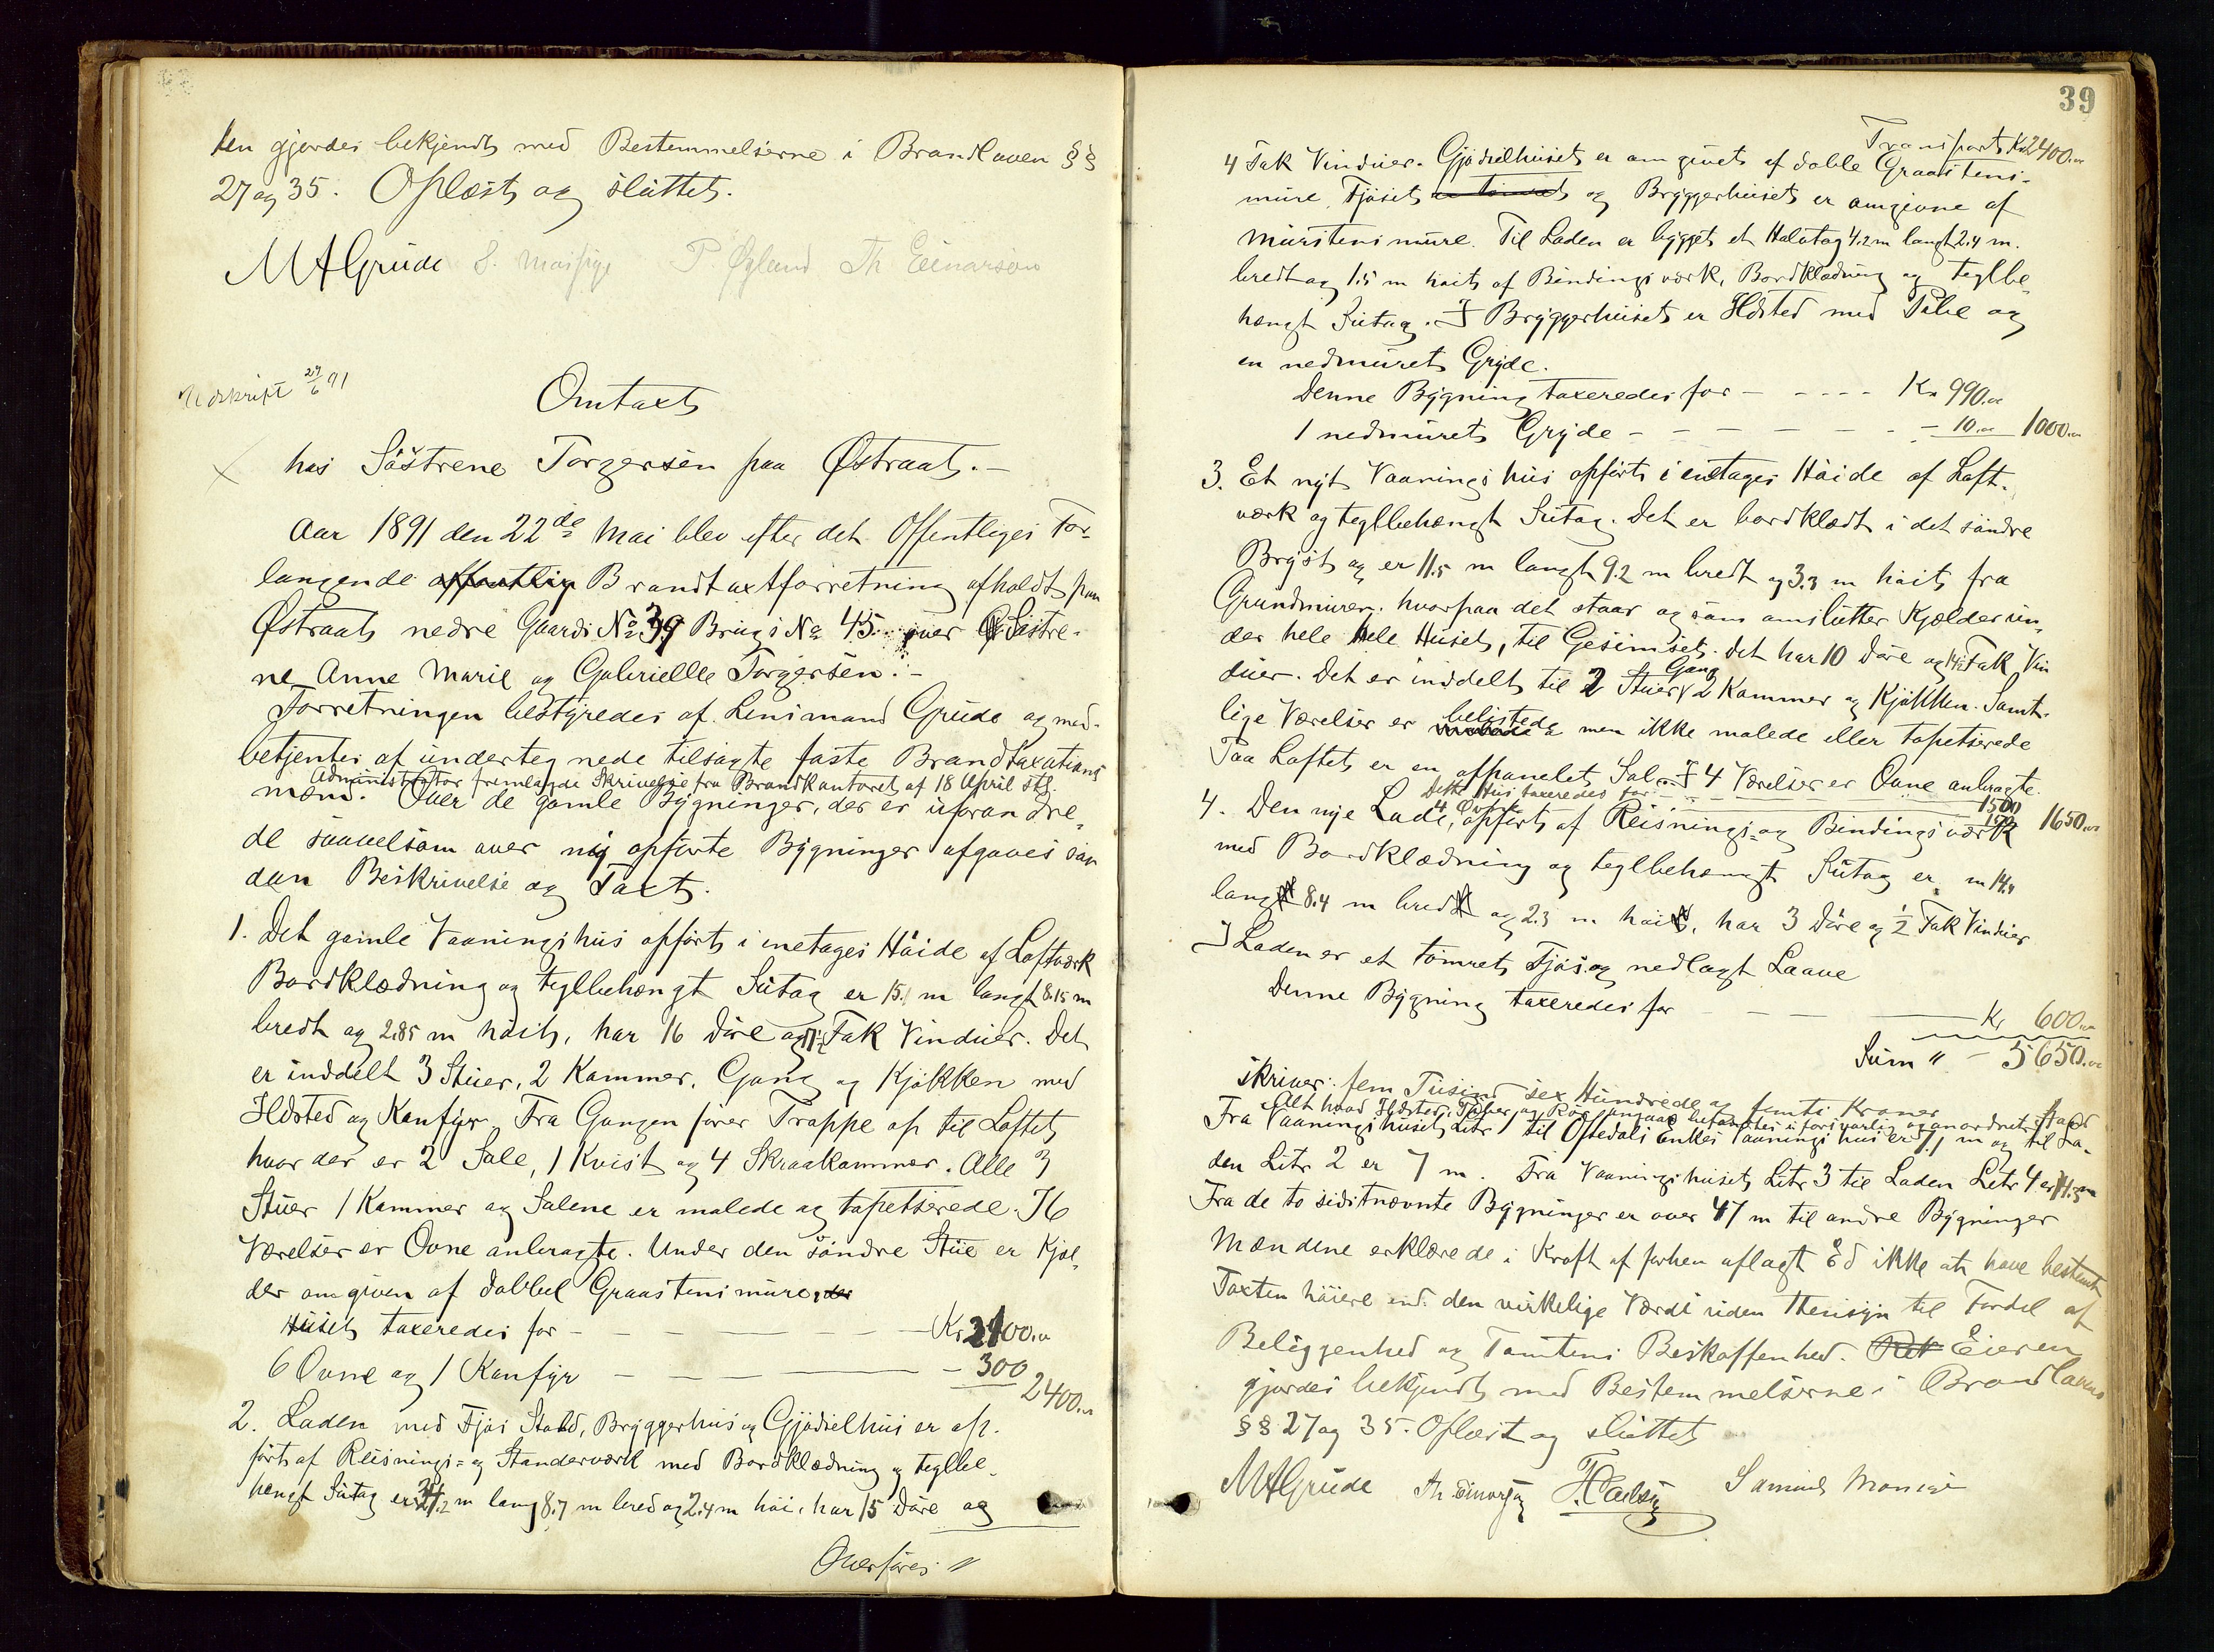 ten gjordes bekjendt med Bestemmelserne i Brandloven §§
27 og 35. Oplæst og sluttet.
MAGrude P. Øgland Th Einarson
Udskrift 29/6 91
Omtaxt
hos Söstrene Torgersen paa Østraat.-
Aar 1891 den 22de Mai blev efter det Offentliges For-
langende offentlig Brandtaxtforretning afholdt paa
Østraat nedre Gaards No 39 Brugs No 45 over Söstre-
ne Anne Marie og Gabrielle Torgersen.-
Forretningen bestyredes af Lensmand Grude og med-
betjentes af undertegnede tilsagte faste Brandtaxations
mænd. Administrator fremlagde Skrivelse fra Brandkontoret af 18 April sl.
Over de gamle Bygninger, der er uforandre-
de saavelsom over ny opförte Bygninger afgaves saa
dan Beskrivelse og Taxt.
1. Det gamle Vaaningshus opfört i enetages Höide af Loftværk
Bordklædning og teglbehængt Sutag er 15.1 m langt 8.15 m
bredt og 2.85 m höit, har 16 Döre og Fak Vinduer. Det
er inddelt 3 Stuer, 2 Kammer, Gang og Kjökken med
Ildsted og Komfyr. Fra Gangen förer Trappe op til Loftet
hvor der er 2 Sale, 1 Kvist og 4 Skraakammer. Alle 3
Stuer 1 Kammer og Salene er malede og tapetserede. I 6
Værelser er Ovne anbragte. Under den söndre Stue er Kjæl-
der omgiven af dobbel Graastensmure, der
Huset taxeredes for - - - - - Kr 2100.00
6 Ovne og 1 Komfyr - - - - 300
2400.00
2. Laden med Fjös Stald, Bryggerhus og Gjödselhus er op-
fört af Reisnings- og Standerværk med Bordklædning og teglbe-
hængt Sutag er m lang 8.7 m bred og 2.4 m höi, har 15 Döre og
Overföres "
39
Transport Kr 2400.00
4 Fak Vinduer. Gjödselhuset er omgivet af doble Graastens-
mure, Fjöset er tömret og Bryggerhuset er omgivne af
Murstensmure. Til Laden er bygget et Halvtag 4.2 m langt 2.4 m.
bredt og 1.5 m höit af Bindingsværk, Bordklædning og teglbe-
hængt Sutag. I Bryggerhuset er Ildsted med Pibe og
en nedmuret Gryde.
Denne Bygning taxeredes for - - - - Kr 990.00
1 nedmuret Gryde - - - - - - - 10.00 1000.00
3. Et nyt Vaaningshus opfört i enetages Höide af Loft-
værk og teglbehængt Sutag. Det er bordklædt i det söndre
Bryst og er 11.5 m langt 9.2 m bredt og 3.3 m höit fra
Grundmuren, hvorpaa det staar og som omslutter Kjælder un-
der hele hele Huset, til Gesimset. Det har 10 Döre og Fak Vin
duer. Det er inddelt til 2 Stuer, Gang 2 Kammer og Kjökken. Samt-
lige Værelser er belistede men ikke malede eller tapetserede
Paa Loftet er en afpanelet Sal. I 4 Værelser er Ovne anbragte.
Dette Hus taxeredes for 1500
4 Ovne 150 1650.00
4. Den nye Lade, opfört af Reisnings- og Bindingsværk
med Bordklædning og teglbehængt Sutag er m 14.
lang 8.4 m bred og 2.3 m höi, har 3 Döre og 1/2 Fak Vinduer
I Laden er et tömret Fjös og nedlagt Laave
Denne Bygning taxeredes for - - - Kr 600.00
Sum " - 5650.00
skriver: fem Tusind sex Hundrede og femti Kroner
Alt hvad Ildsteder, Piber og Rör angaar befandtes i forsvarlig og anordnet Stand
Fra Vaaningshuset Litr 1 til Oftedals Enkes Vaaningshus er 7.1 m og til La-
den Litr 2 er 7 m. Fra Vaaningshuset Litr 3 til Laden Litr 4 er m
Fra de to sidstnævnte Bygninger er over 47 m til andre Bygninger
Mændene erklærede i Kraft af forhen aflagt Ed ikke at have bestemt
Taxten höiere end den virkelige Værdi uden Hensyn til Fordel af
Beliggenhed og Tomtens Beskaffenhed. Eieren
gjordes bekjendt med Bestemmelserne i Brandlovens
§§ 27 og 35. Oplæst og sluttet
MAGrude Th Einarson